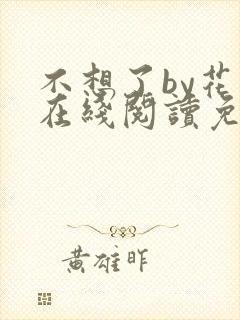 不想了by花
在綫閱讀免
黃雄昨